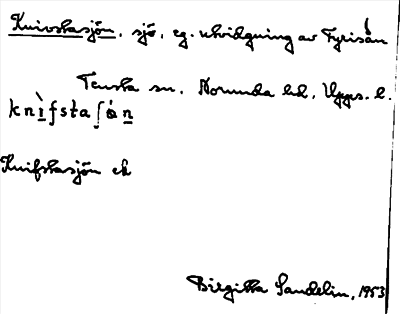 Knivstasjön, sjö, eg. utvidgning av Fyrisån
Tensta sn. Norunda hd. Upps. l.
knìfstaʃón
Knifstasjön ek
Birgitta Sandelin, 1953